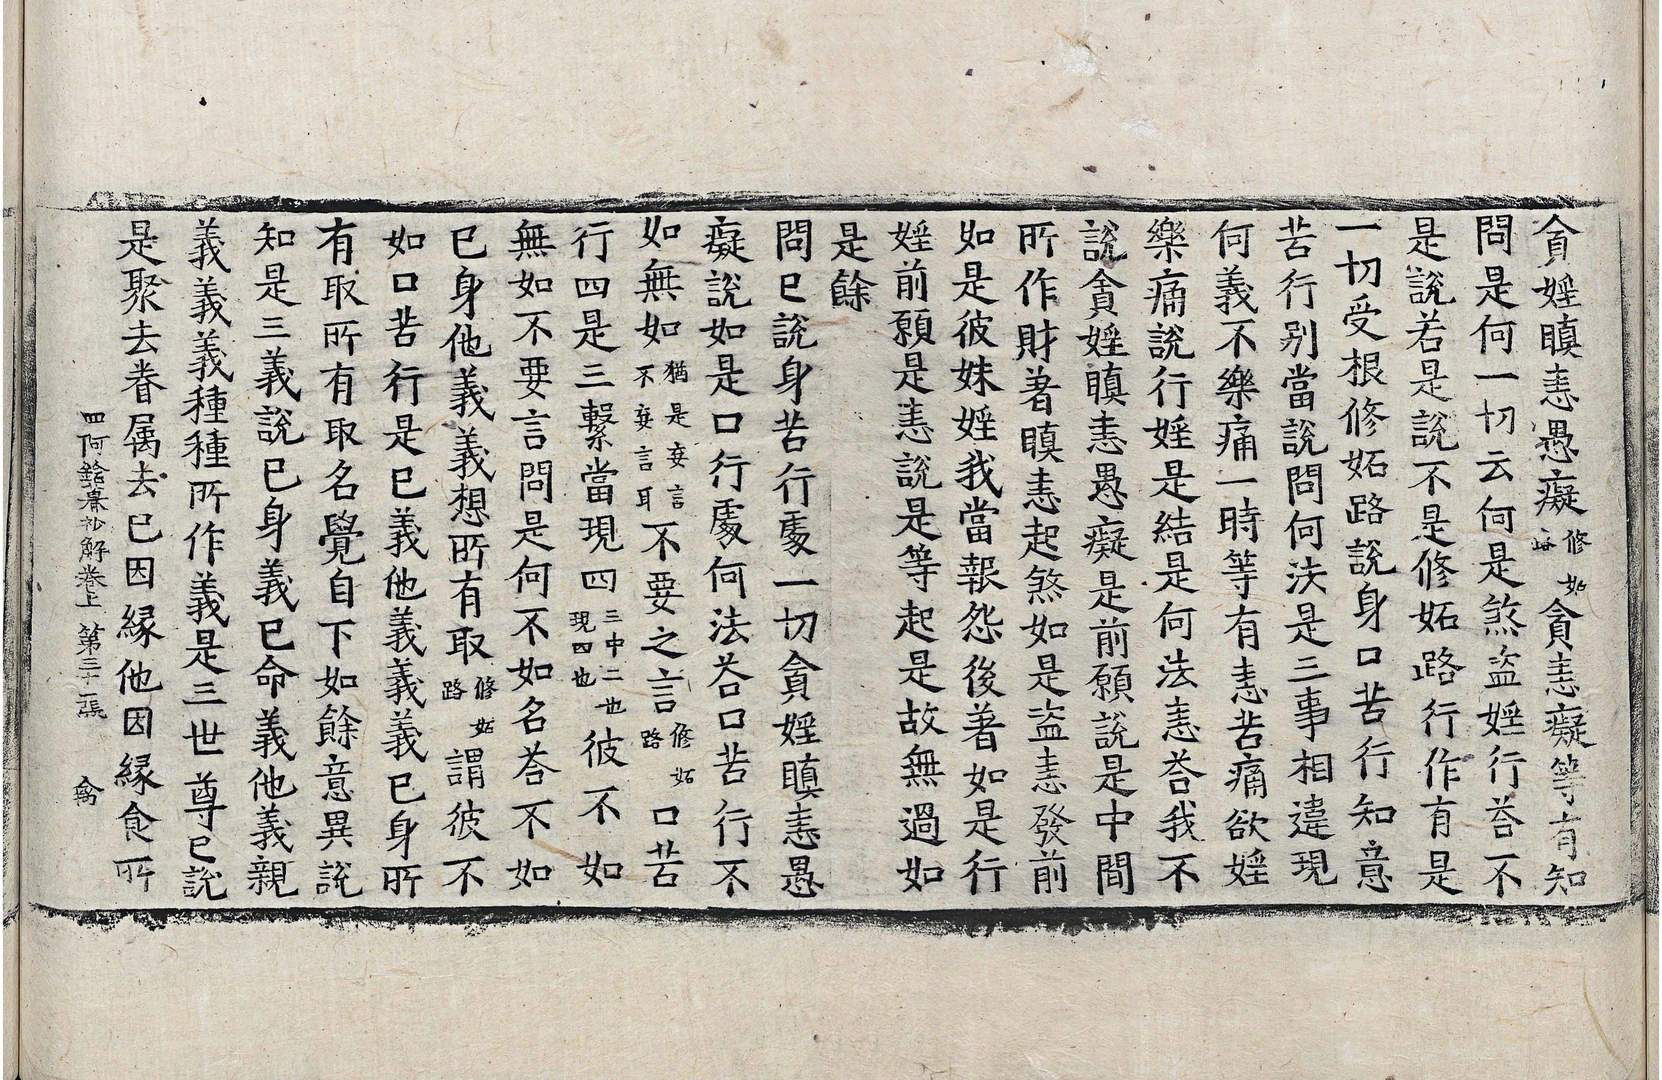 貪婬瞋恚愚癡修妬路貪恚癡等有知
問是何一切云何是煞盜婬行荅不
是說若是說不是修妬路行作有是
一切受根修妬路說身口苦行知意
苦行别當說問何法是三事相違現
何義不樂痛一時等有恚苦痛欲婬
樂痛說行婬是結是何法恚荅我不
說貪婬瞋恚愚癡是前願說是中間
所作財著瞋恚起煞如是盜恚發前
如是彼妹婬我當報怨後著如是行
婬前願是恚說是等起是故無過如
是餘
問已說身苦行處一切貪婬瞋恚愚
癡說如是口行處何法荅口苦行不
如無如猶是妄言不妄言耳不要之言修妬路口苦
行四是三繫當現四三中二也現四也彼不如
無如不要言問是何不如名荅不如
已身他義義想所有取修妬路謂彼不
如口苦行是已義他義義義已身所
有取所有取名覺自下如餘意異說
知是三義說已身義已命義他義親
義義義義種種所作義是三世尊已說
是聚去眷属去已因緣他因緣食所
四阿鋡暮抄解卷上 第三十二張 禽